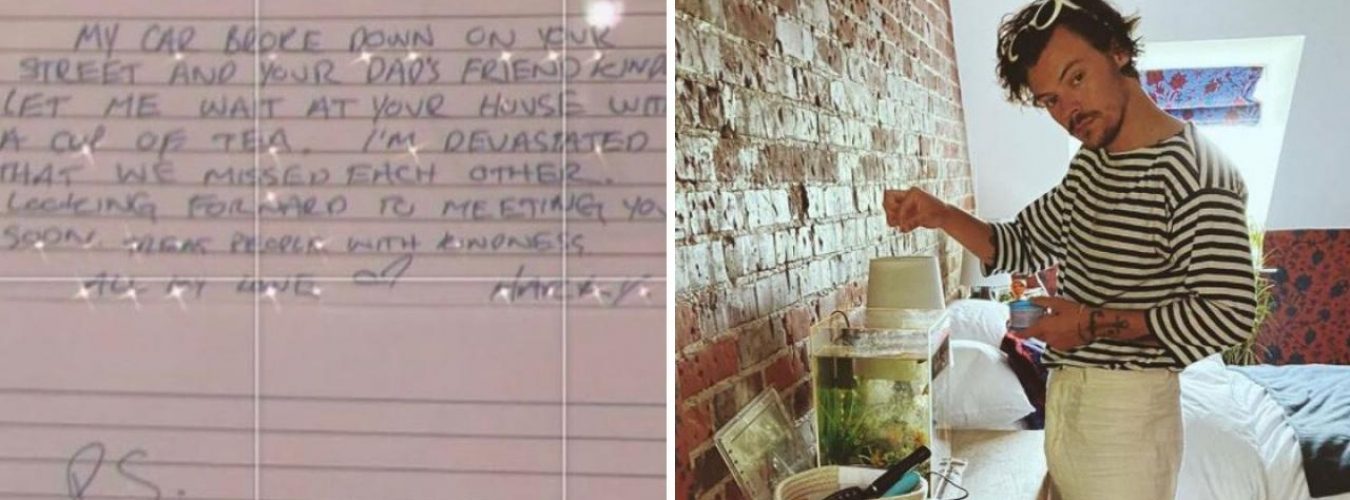 MY CAR BROKE DOWN ON YOUR
STREET AND YOUR DAD'S FRIEND KIND
LET ME WAIT AT YOUR HOUSE WIT
A CUP OF TEA. I'M DEVASTATED
THAT WE MISSED EACH OTHER.
LOOKING FORWARD TO MEETING YO
SOON. TREAT PEOPLE WITH KINDNESS.
ALL MY LOVE
P.S.